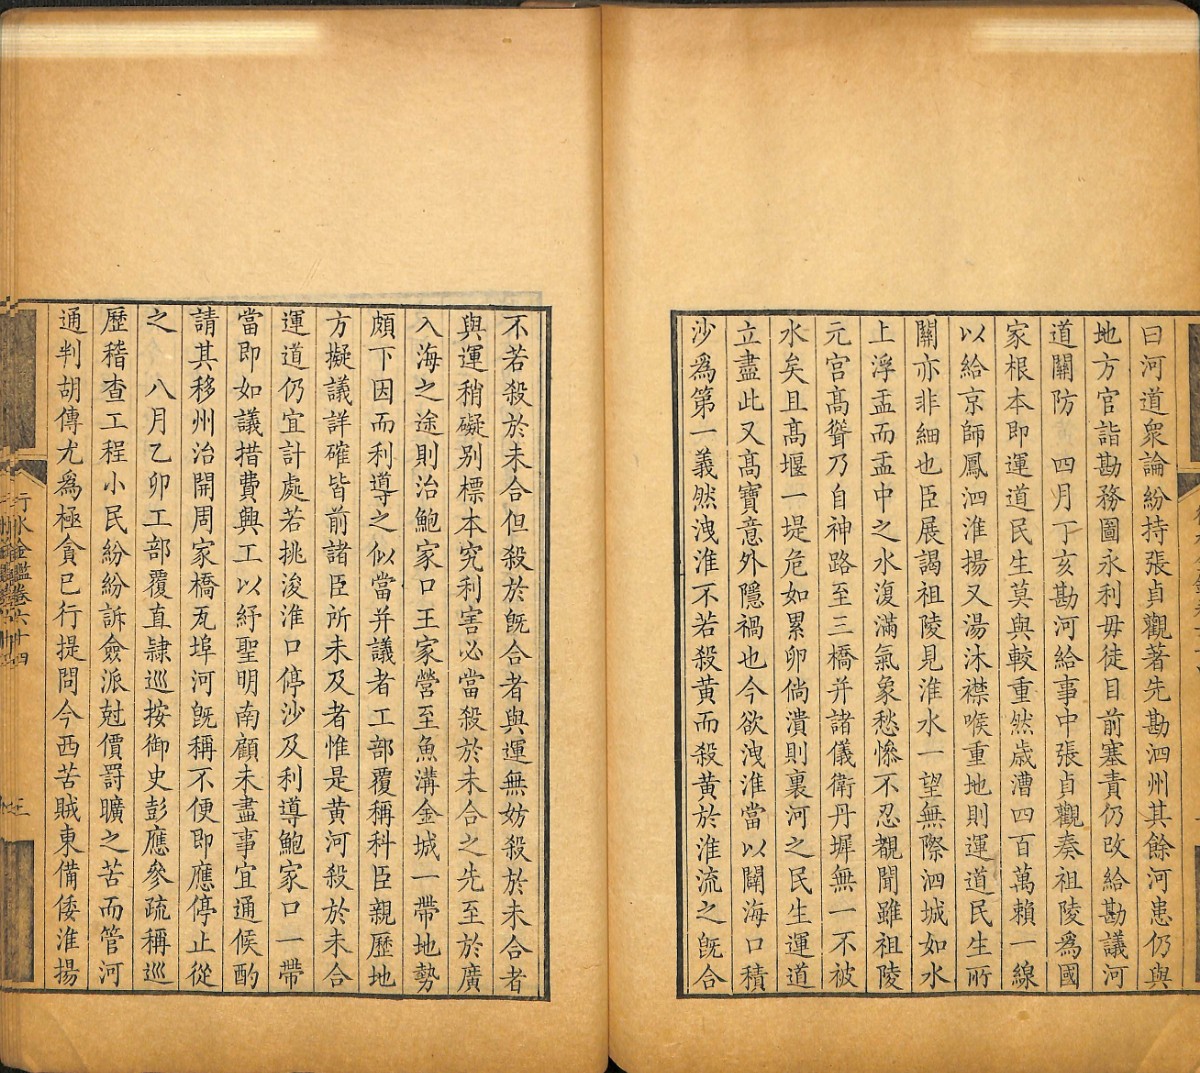 曰河道衆論紛持張貞觀著先勘泗州其餘河患仍與
地方官詣勘務圖永利毋徒目前塞責仍改給勘議河
道關防　四月丁亥勘河給事中張貞觀奏祖陵爲國
家根本即運道民生莫與較重然歳漕四百萬賴一線
以給京師鳳泗淮揚又湯沐襟喉重地則運道民生所
關亦非細也臣展謁祖陵見淮水一望無際泗城如水
上浮盂而盂中之水復滿氣象愁慘不忍覩聞雖祖陵
元宮高聳乃自神路至三橋并諸儀衛丹墀無一不被
水矣且高堰一堤危如累卵倘潰則裏河之民生運道
立盡此又高寶意外隱禍也今欲洩淮當以闢海口積
沙爲第一義然洩淮不若殺黃而殺黃於淮流之旣合
不若殺於未合但殺於旣合者與運無妨殺於未合者
與運稍礙别標本究利害必當殺於未合之先至於廣
入海之途則治鮑家口王家營至魚溝金城一帶地勢
頗下因而利導之似當并議者工部覆稱科臣親歷地
方擬議詳確皆前諸臣所未及者惟是黄河殺於未合
運道仍宜計處若挑浚淮口停沙及利導鮑家口一帶
當即如議措費興工以紓聖明南顧未盡事宜通候酌
請其移州治開周家橋瓦埠河旣稱不便即應停止從
之　八月乙卯工部覆直隷巡按御史彭應參疏稱巡
歷稽查工程小民紛紛訴僉派尅價罸曠之苦而管河
通判胡傳尤爲極貪已行提問今西苦賊東備倭淮揚
行水金鑑卷六十四